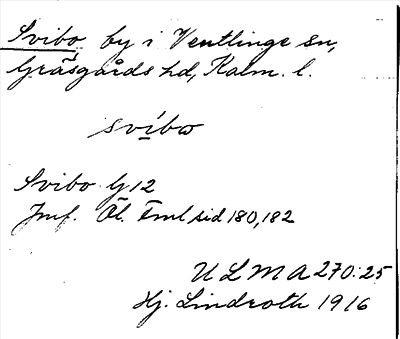 Svibo by i Ventlinge sn,
Gräsgårds hd, Kalm. l.
svibo
Svibo G 12
Jmf. Öl. Fml sid 180, 182
ULMA 270:25
Hj. Lindroth 1916